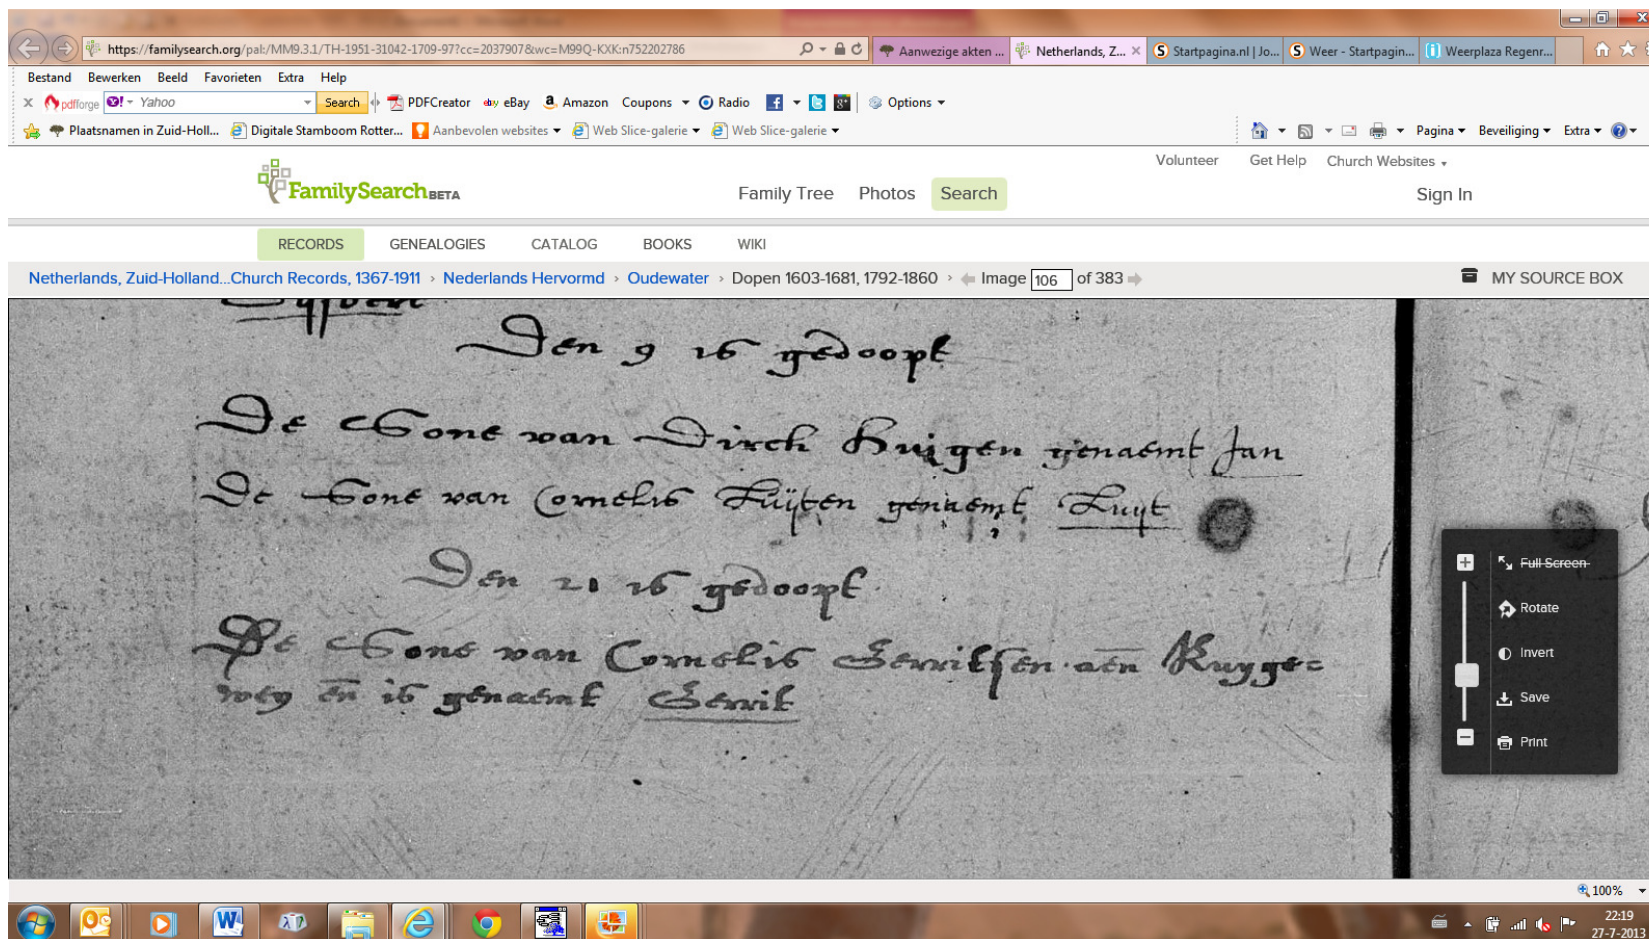 https://familysearch.org/pal:/MM9.3.1/TH-1951-31042-1709-97?cc=2037907&wc=M99Q-KXK:n752202786
Aanwezige akten ...
Netherlands, Z...
Startpagina.nl | Jo...
Weer - Startpagin...
Weerplaza Regenr...
Bestand Bewerken Beeld Favorieten Extra Help
pdfforge Yahoo Search PDFCreator eBay Amazon Coupons Radio Options
Plaatsnamen in Zuid-Holl... Digitale Stamboom Rotter... Aanbevolen websites Web Slice-galerie Web Slice-galerie Pagina Beveiliging Extra
Volunteer Get Help Church Websites
FamilySearch BETA Family Tree Photos Search Sign In
RECORDS GENEALOGIES CATALOG BOOKS WIKI
Netherlands, Zuid-Holland...Church Records, 1367-1911 › Nederlands Hervormd › Oudewater › Dopen 1603-1681, 1792-1860 › Image 106 of 383 MY SOURCE BOX
Den 9 is gedoopt
De Sone van Dirch Huigen genaemt Jan
De Sone van Cornelis Luijten genaemt Luyt
Den 21 is gedoopt
De Sone van Cornelis Gerritsen aen Ruyge=
wey en is genaemt Gerrit
Full Screen
Rotate
Invert
Save
Print
100%
22:19
27-7-2013